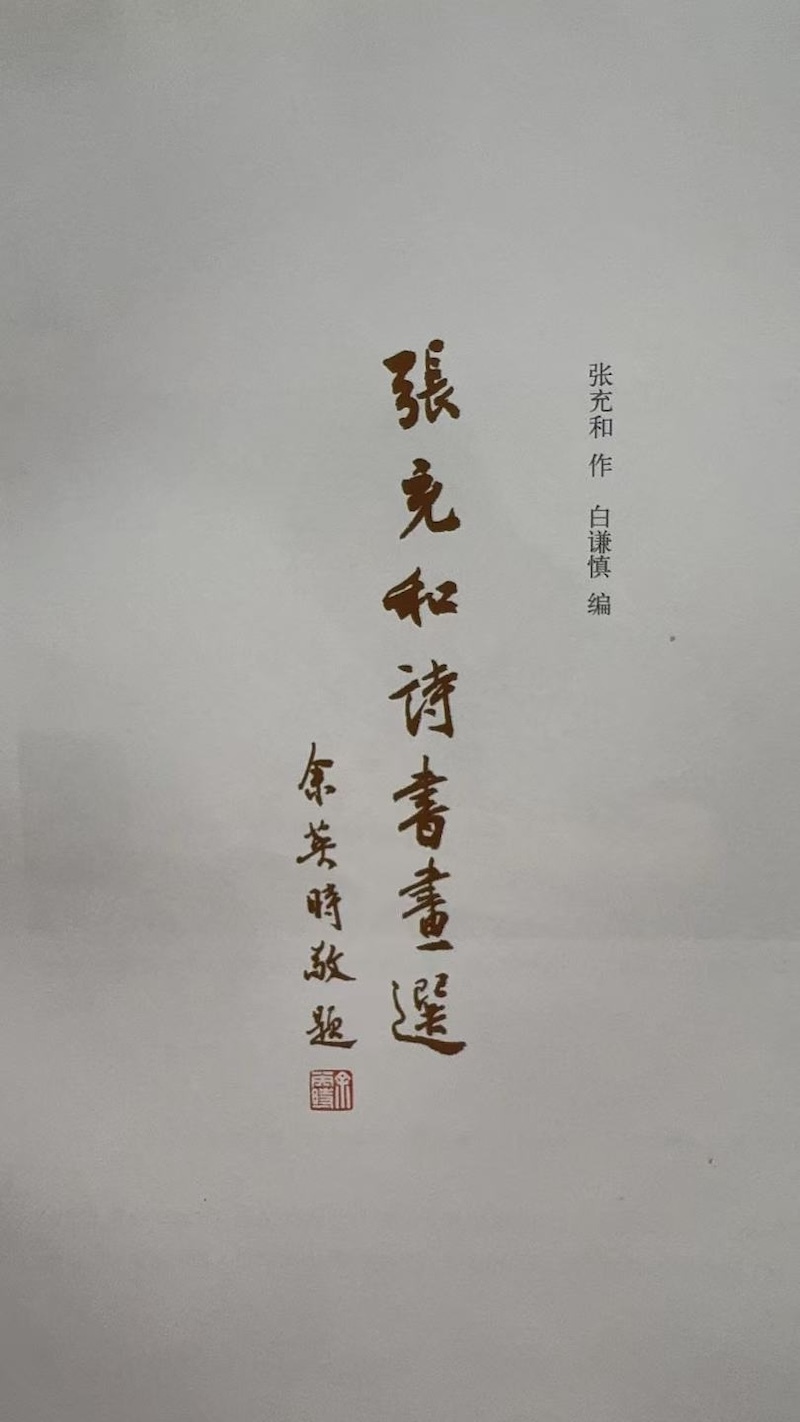 张充和 作 白谦慎 编
張充和詩書畫選
余英時敬題